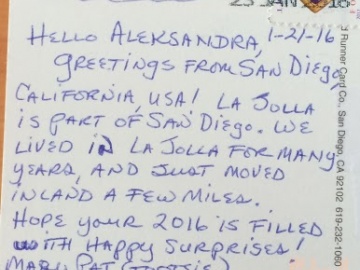 23 JAN 2016
HELLO ALEKSANDRA, 1-21-16
GREETINGS FROM SAN DIEGO,
CALIFORNIA, USA! LA JOLLA
IS PART OF SAN DIEGO. WE
LIVED IN LA JOLLA FOR MANY
YEARS, AND JUST MOVED
INLAND A FEW MILES.
HOPE YOUR 2016 IS FILLED
WITH HAPPY SURPRISES!
MARY PAT
Runner Card Co., San Diego, CA 92102 619-232-1060